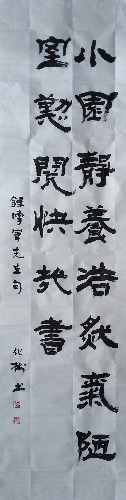 小園靜養浩然氣陋
室勤開快哉書
錄雪軍先生句
化樹书